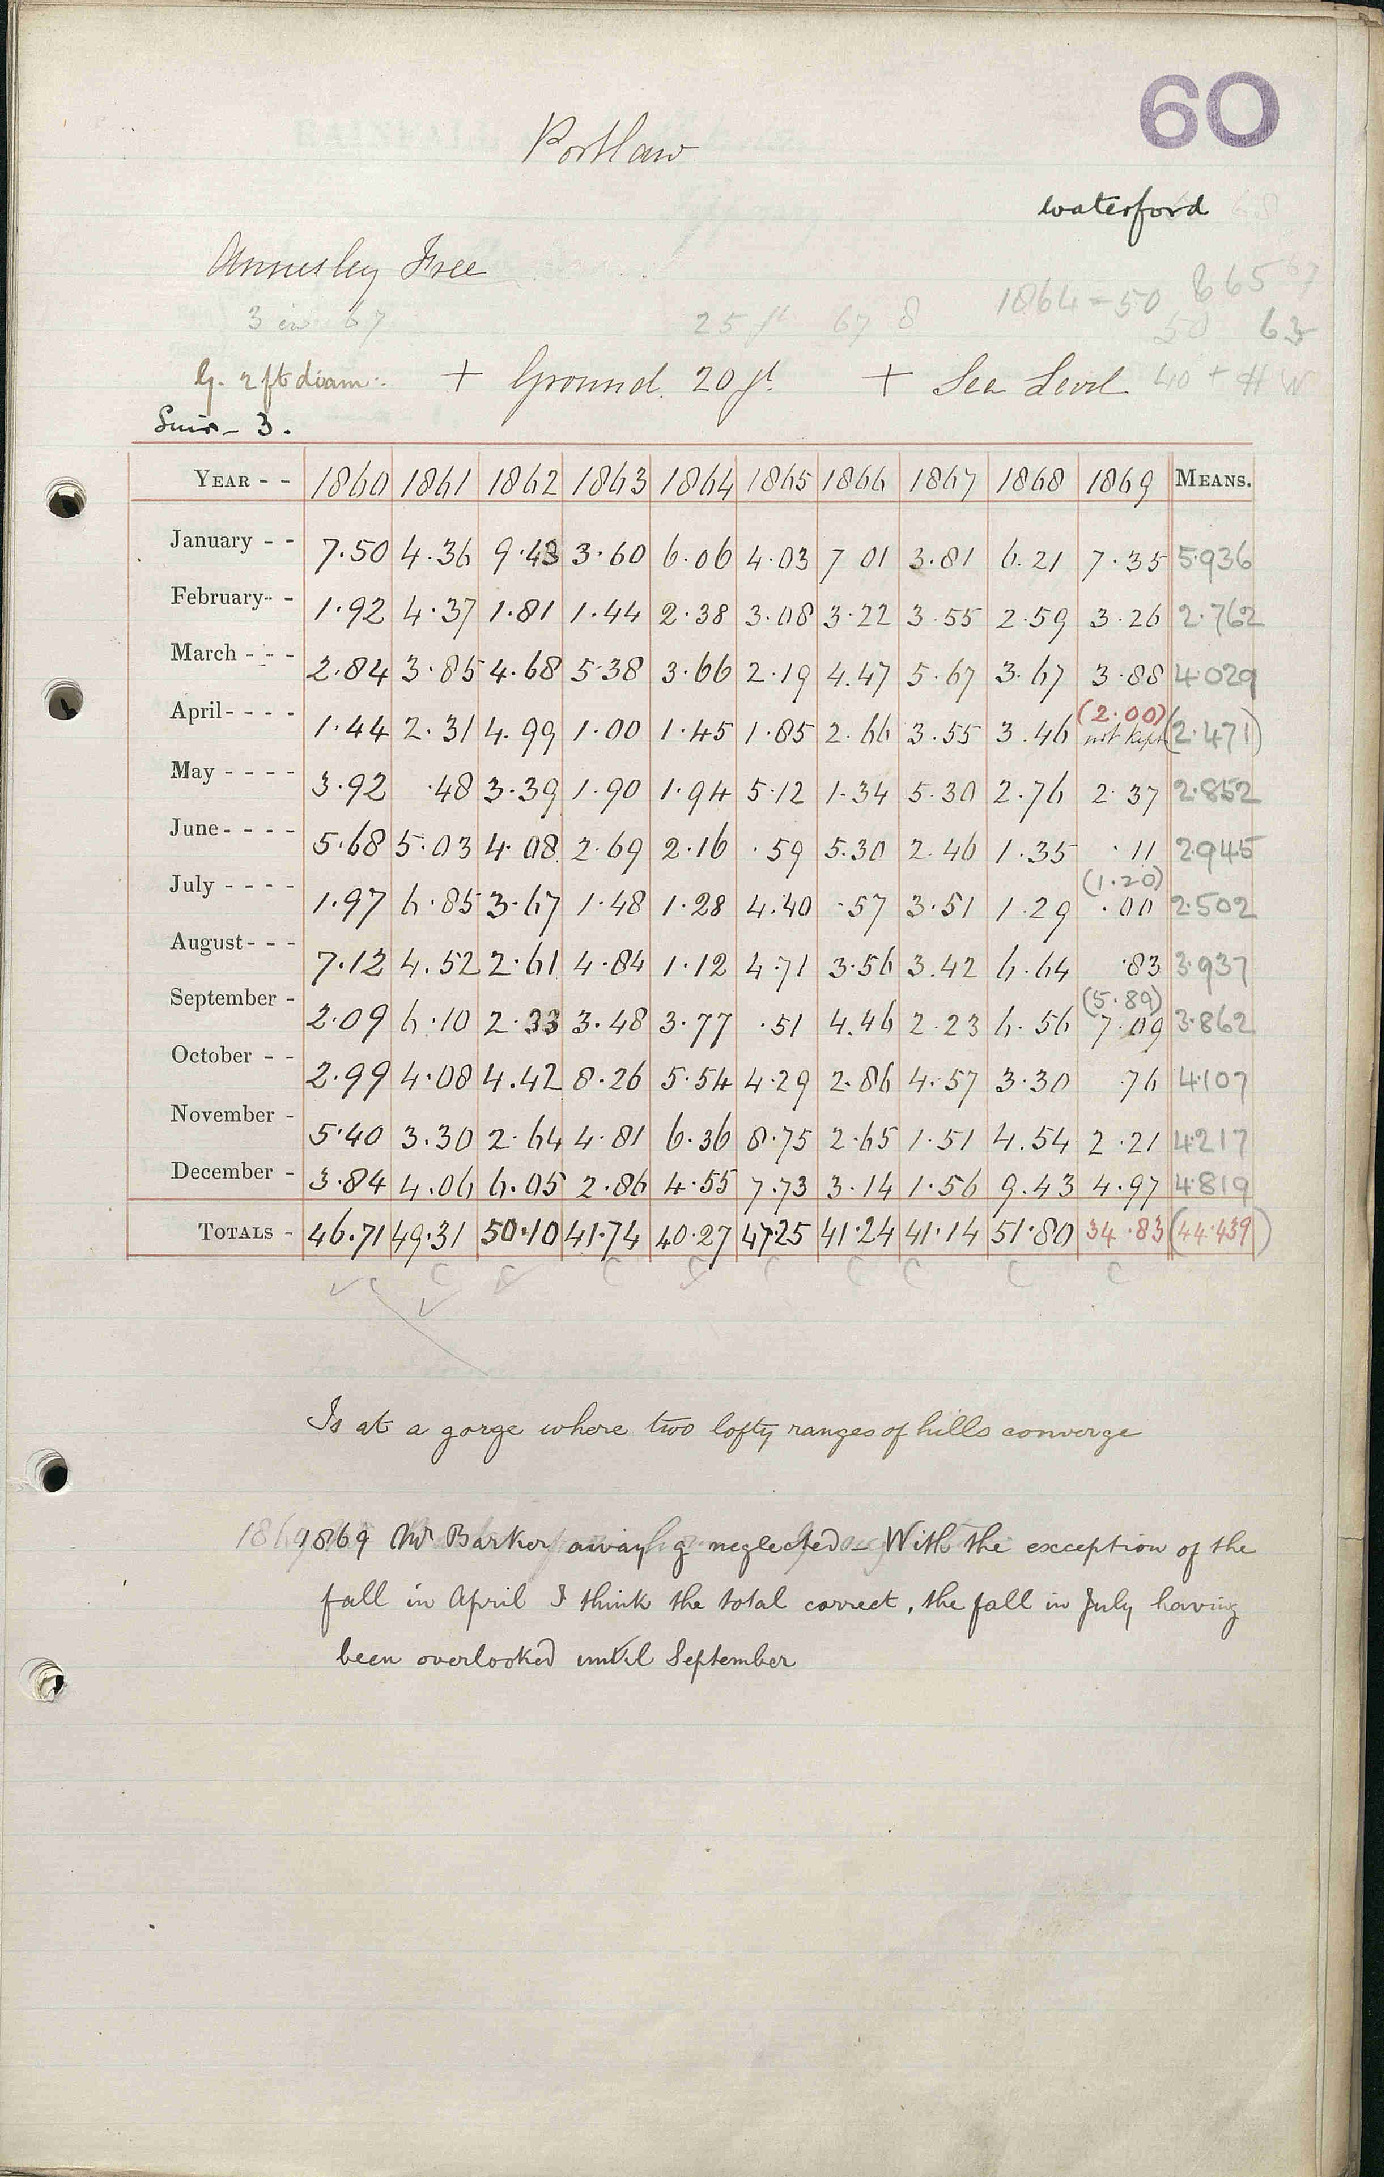 60
Portlaw
Waterford
Annesley Free
1864 = 50 65 67
3 in 67 25 ft 67 8 50 63
G. 2 ft diam: + Ground 20 ft + Sea Level 40 + H W
Suir - 3.
YEAR - - 1860 1861 1862 1863 1864 1865 1866 1867 1868 1869 MEANS.
January - - 7.50 4.36 9.43 3.60 6.06 4.03 7 01 3.81 6.21 7.35 5.936
February - - 1.92 4.37 1.81 1.44 2.38 3.08 3.22 3.55 2.59 3.26 2.762
March - - - 2.84 3.85 4.68 5.38 3.66 2.19 4.47 5.67 3.67 3.88 4.029
(2.00)
April - - - - 1.44 2.31 4.99 1.00 1.45 1.85 2.66 3.55 3.46 not kept (2.471)
May - - - - 3.92 .48 3.39 1.90 1.94 5.12 1.34 5.30 2.76 2.37 2.852
June - - - - 5.68 5.03 4.08 2.69 2.16 .59 5.30 2.46 1.35 .11 2.945
(1.20)
July - - - - 1.97 6.85 3.67 1.48 1.28 4.40 .57 3.51 1.29 .00 2.502
August - - - 7.12 4.52 2.61 4.84 1.12 4.71 3.56 3.42 6.64 .83 3.937
(5.89)
September - 2.09 6.10 2.33 3.48 3.77 .51 4.46 2.23 6.56 7.09 3.862
October - - 2.99 4.08 4.42 8.26 5.54 4.29 2.86 4.57 3.30 .76 4.107
November - 5.40 3.30 2.64 4.81 6.36 8.75 2.65 1.51 4.54 2.21 4.217
December - 3.84 4.06 6.05 2.86 4.55 7.73 3.14 1.56 9.43 4.97 4.819
TOTALS - 46.71 49.31 50.10 41.74 40.27 47.25 41.24 41.14 51.80 34.83 (44.439)
c c c c c c c c c c
Is at a gorge where two lofty ranges of hills converge
1869 Mr Barker away & g neglected - With the exception of the
fall in April I think the total correct, the fall in July having
been overlooked until September